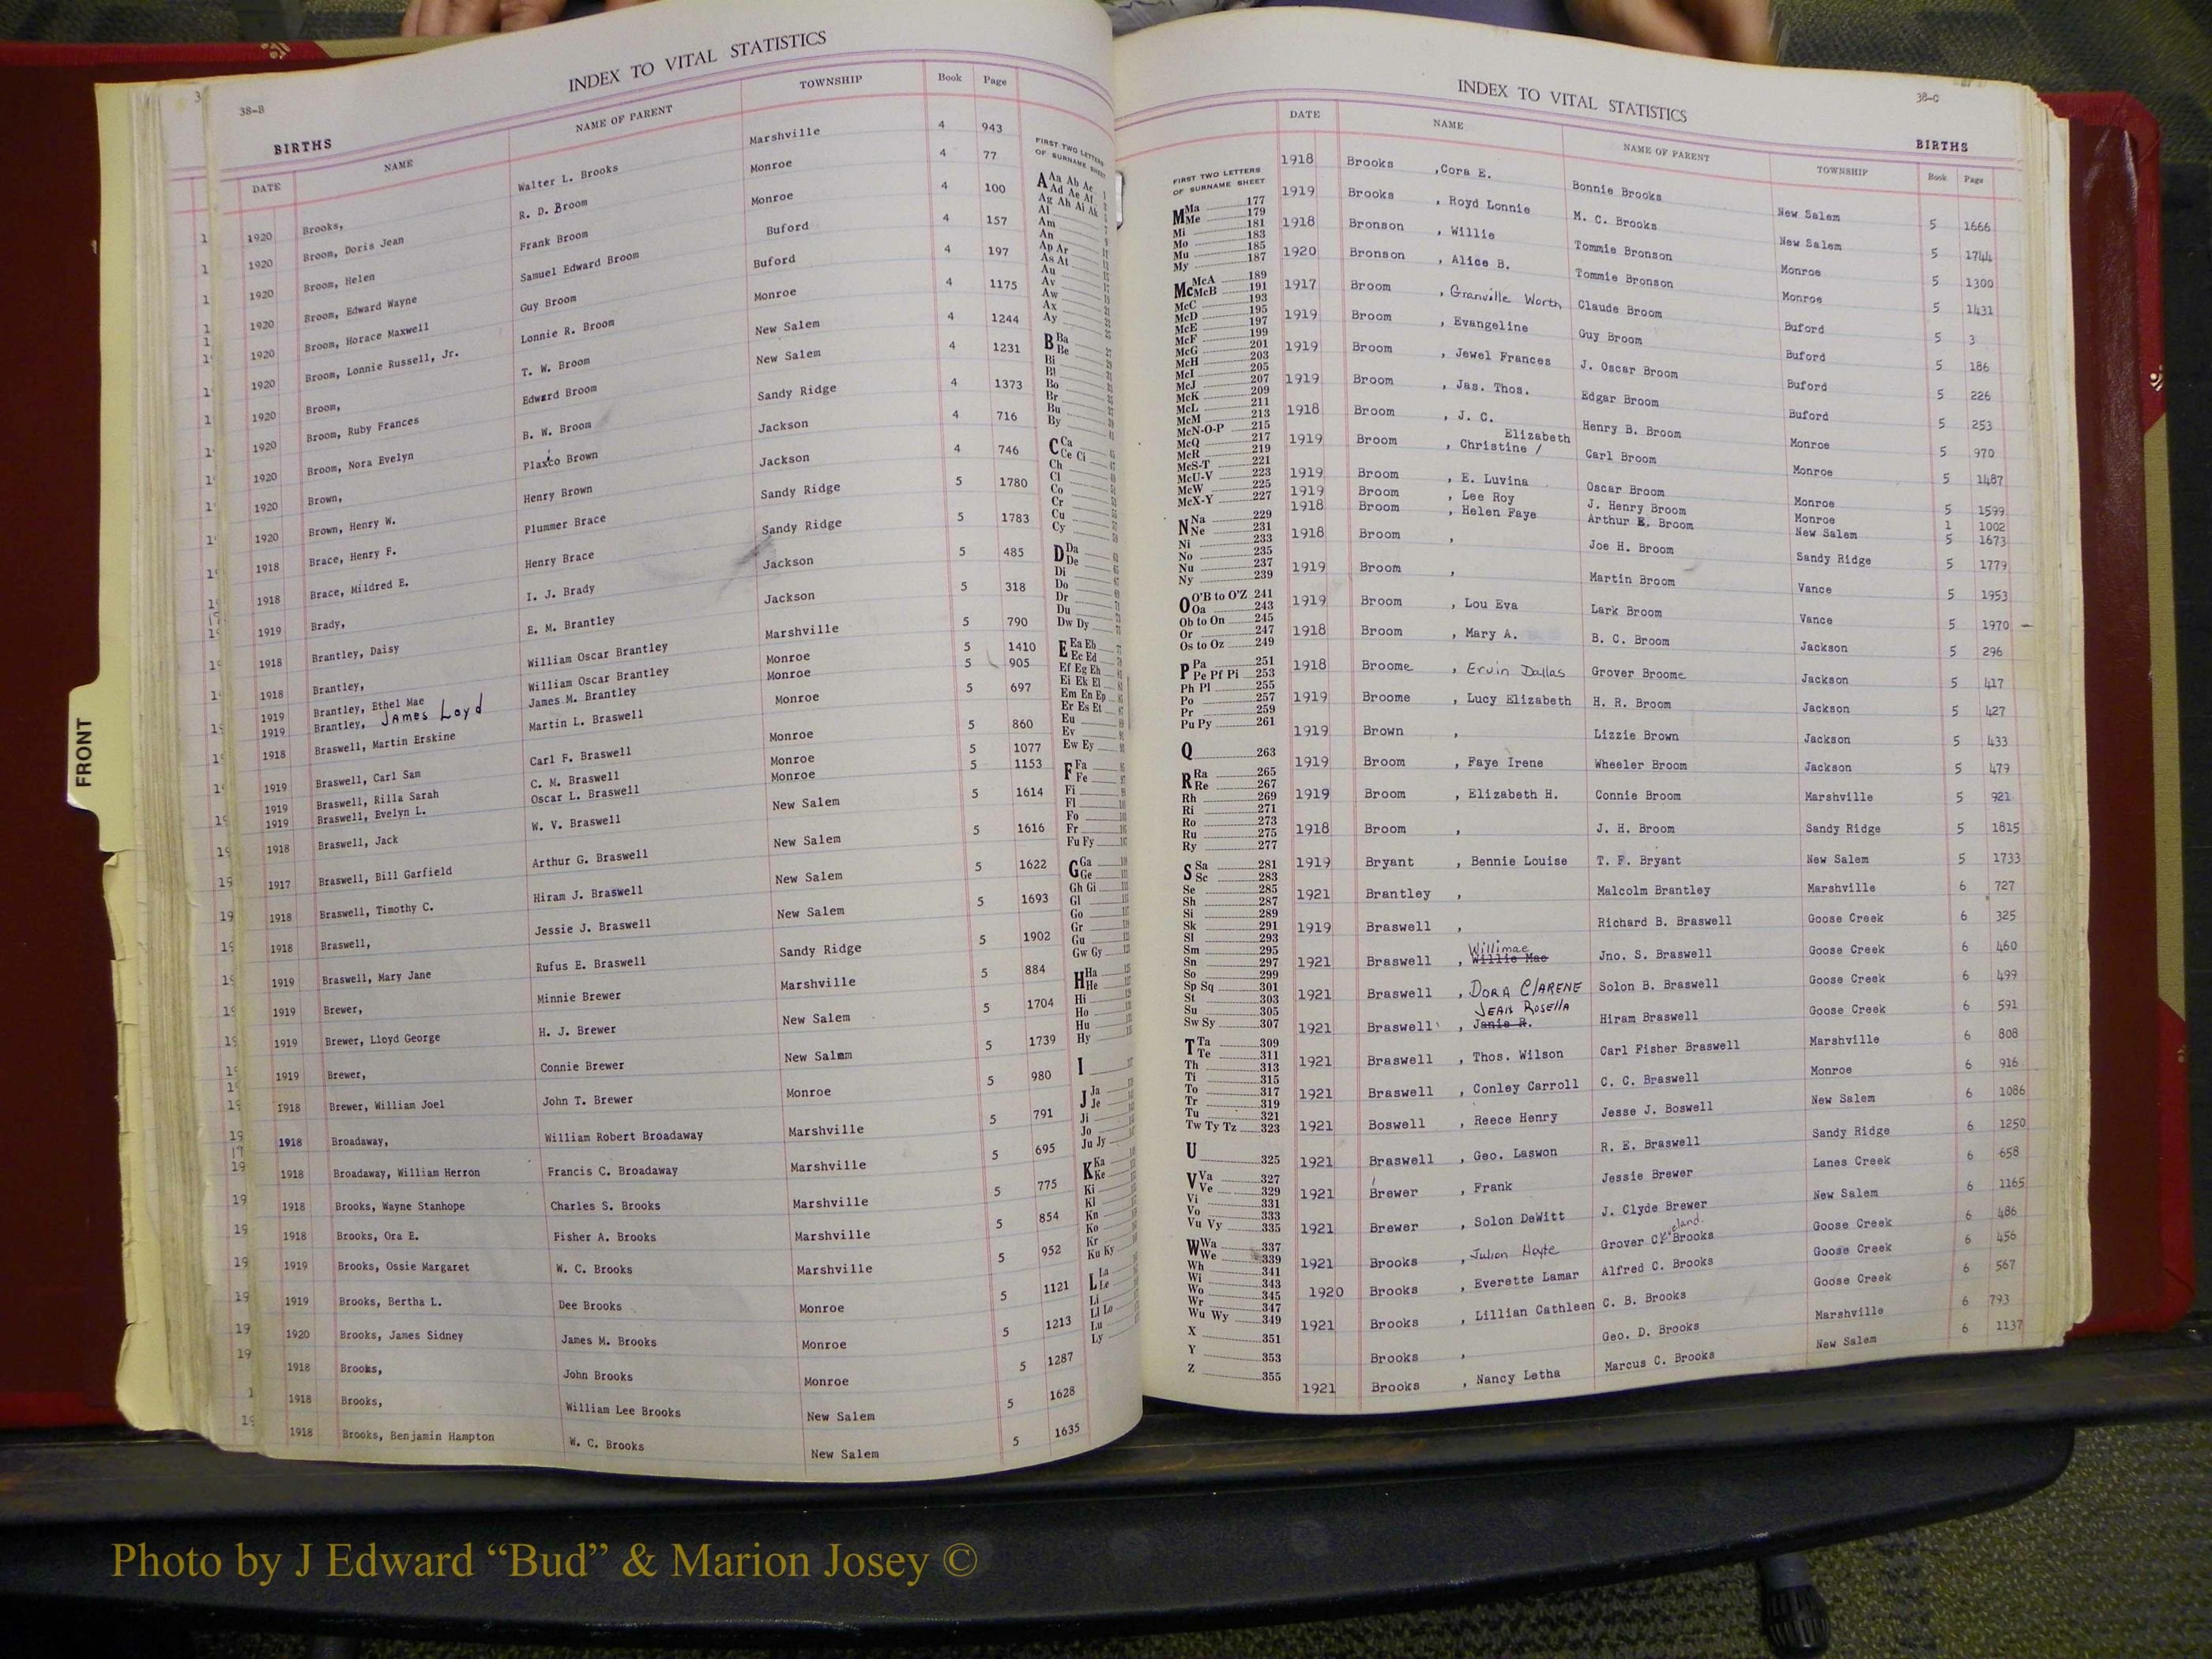 INDEX TO VITAL STATISTICS
38-B
BIRTHS
DATE NAME NAME OF PARENT TOWNSHIP Book Page
1920 Brooks, Walter L. Brooks Marshville 4 943
1920 Broom, Doris Jean R. D. Broom Monroe 4 77
1920 Broom, Helen Frank Broom Monroe 4 100
1920 Broom, Edward Wayne Samuel Edward Broom Buford 4 157
1920 Broom, Horace Maxwell Guy Broom Buford 4 197
1920 Broom, Lonnie Russell, Jr. Lonnie R. Broom Monroe 4 1175
1920 Broom, T. W. Broom New Salem 4 1244
1920 Broom, Ruby Frances Edward Broom New Salem 4 1231
1920 Broom, Nora Evelyn B. W. Broom Sandy Ridge 4 1373
1920 Brown, Plaxco Brown Jackson 4 716
1920 Brown, Henry W. Henry Brown Jackson 4 746
1918 Brace, Henry F. Plummer Brace Sandy Ridge 5 1780
1918 Brace, Mildred E. Henry Brace Sandy Ridge 5 1783
1919 Brady, I. J. Brady Jackson 5 485
1918 Brantley, Daisy E. M. Brantley Jackson 5 318
1918 Brantley, William Oscar Brantley Marshville 5 790
1919 Brantley, Ethel Mae William Oscar Brantley Monroe 5 1410
1919 Brantley, JAMES Loyd James M. Brantley Monroe 5 905
1918 Braswell, Martin Erskine Martin L. Braswell Monroe 5 697
1919 Braswell, Carl Sam Carl F. Braswell Monroe 5 860
1919 Braswell, Rilla Sarah C. M. Braswell Monroe 5 1077
1919 Braswell, Evelyn L. Oscar L. Braswell Monroe 5 1153
1918 Braswell, Jack W. V. Braswell New Salem 5 1614
1917 Braswell, Bill Garfield Arthur G. Braswell New Salem 5 1616
1918 Braswell, Timothy C. Hiram J. Braswell New Salem 5 1622
1918 Braswell, Jessie J. Braswell New Salem 5 1693
1919 Braswell, Mary Jane Rufus E. Braswell Sandy Ridge 5 1902
1919 Brewer, Minnie Brewer Marshville 5 884
1919 Brewer, Lloyd George H. J. Brewer New Salem 5 1704
1919 Brewer, Connie Brewer New Salem 5 1739
1918 Brewer, William Joel John T. Brewer Monroe 5 980
1918 Broadaway, William Robert Broadaway Marshville 5 791
1918 Broadaway, William Herron Francis C. Broadaway Marshville 5 695
1918 Brooks, Wayne Stanhope Charles S. Brooks Marshville 5 775
1918 Brooks, Ora E. Fisher A. Brooks Marshville 5 854
1919 Brooks, Ossie Margaret W. C. Brooks Marshville 5 952
1919 Brooks, Bertha L. Dee Brooks Monroe 5 1121
1920 Brooks, James Sidney James M. Brooks Monroe 5 1213
1918 Brooks, John Brooks Monroe 5 1287
1918 Brooks, William Lee Brooks New Salem 5 1628
1918 Brooks, Benjamin Hampton W. C. Brooks New Salem 5 1635
FIRST TWO LETTERS
OF SURNAME SHEET
A Aa Ab Ac
Ad Ae Af
Ag Ah Ai Ak
Al
Am
An
Ap Ar
As At
Au
Av
Aw
Ax
Ay
B Ba
Be
Bi
Bl
Bo
Br
Bu
By
C Ca
Ce Ci
Ch
Cl
Co
Cr
Cu
Cy
D Da
De
Di
Do
Dr
Du
Dw Dy
E Ea Eb
Ec Ed
Ef Eg Eh
Ei Ek El
Em En Ep
Er Es Et
Eu
Ev
Ew Ey
F Fa
Fe
Fi
Fl
Fo
Fr
Fu Fy
G Ga
Ge
Gh Gi
Gl
Go
Gr
Gu
Gw Gy
H Ha
He
Hi
Ho
Hu
Hy
I
J Ja
Je
Ji
Jo
Ju Jy
K Ka
Ke
Ki
Kl
Kn
Ko
Kr
Ku Ky
L La
Le
Li
Ll Lo
Lu
Ly
FRONT
INDEX TO VITAL STATISTICS
38-C
BIRTHS
FIRST TWO LETTERS
OF SURNAME SHEET
M Ma 177
Me 179
Mi 181
Mo 183
Mu 185
My 187
Mc McA 189
McB 191
McC 193
McD 195
McE 197
McF 199
McG 201
McH 203
McI 205
McJ 207
McK 209
McL 211
McM 213
McN-O-P 215
McQ 217
McR 219
McS-T 221
McU-V 223
McW 225
McX-Y 227
N Na 229
Ne 231
Ni 233
No 235
Nu 237
Ny 239
O O'B to O'Z 241
Oa 243
Ob to On 245
Or 247
Os to Oz 249
P Pa 251
Pe Pf Pi 253
Ph Pl 255
Po 257
Pr 259
Pu Py 261
Q 263
R Ra 265
Re 267
Rh 269
Ri 271
Ro 273
Ru 275
Ry 277
S Sa 281
Sc 283
Se 285
Sh 287
Si 289
Sk 291
Sl 293
Sm 295
Sn 297
So 299
Sp Sq 301
St 303
Su 305
Sw Sy 307
T Ta 309
Te 311
Th 313
Ti 315
To 317
Tr 319
Tu 321
Tw Ty Tz 323
U 325
V Va 327
Ve 329
Vi 331
Vo 333
Vu Vy 335
W Wa 337
We 339
Wh 341
Wi 343
Wo 345
Wr 347
Wu Wy 349
X 351
Y 353
Z 355
DATE NAME NAME OF PARENT TOWNSHIP Book Page
1918 Brooks ,Cora E. Bonnie Brooks New Salem 5 1666
1919 Brooks , Royd Lonnie M. C. Brooks New Salem 5 1744
1918 Bronson , Willie Tommie Bronson Monroe 5 1300
1920 Bronson , Alice B. Tommie Bronson Monroe 5 1431
1917 Broom , Granville Worth Claude Broom Buford 5 3
1919 Broom , Evangeline Guy Broom Buford 5 186
1919 Broom , Jewel Frances J. Oscar Broom Buford 5 226
1919 Broom , Jas. Thos. Edgar Broom Buford 5 253
1918 Broom , J. C. Henry B. Broom Monroe 5 970
Elizabeth
1919 Broom , Christine / Carl Broom Monroe 5 1487
1919 Broom , E. Luvina Oscar Broom Monroe 5 1599
1919 Broom , Lee Roy J. Henry Broom Monroe 1 1002
1918 Broom , Helen Faye Arthur E. Broom New Salem 5 1673
1918 Broom , Joe H. Broom Sandy Ridge 5 1779
1919 Broom , Martin Broom Vance 5 1953
1919 Broom , Lou Eva Lark Broom Vance 5 1970
1918 Broom , Mary A. B. C. Broom Jackson 5 296
1918 Broome , Ervin Dallas Grover Broome Jackson 5 417
1919 Broome , Lucy Elizabeth H. R. Broom Jackson 5 427
1919 Brown , Lizzie Brown Jackson 5 433
1919 Broom , Faye Irene Wheeler Broom Jackson 5 479
1919 Broom , Elizabeth H. Connie Broom Marshville 5 921
1918 Broom , J. H. Broom Sandy Ridge 5 1815
1919 Bryant , Bennie Louise T. F. Bryant New Salem 5 1733
1921 Brantley , Malcolm Brantley Marshville 6 727
1919 Braswell , Richard B. Braswell Goose Creek 6 325
Willimae
1921 Braswell , Willie Mae Jno. S. Braswell Goose Creek 6 460
1921 Braswell , DORA ClARENE Solon B. Braswell Goose Creek 6 499
JEAN ROSEllA
1921 Braswell , Janie R. Hiram Braswell Goose Creek 6 591
1921 Braswell , Thos. Wilson Carl Fisher Braswell Marshville 6 808
1921 Braswell , Conley Carroll C. C. Braswell Monroe 6 916
1921 Boswell , Reece Henry Jesse J. Boswell New Salem 6 1086
1921 Braswell , Geo. Laswon R. E. Braswell Sandy Ridge 6 1250
1921 Brewer , Frank Jessie Brewer Lanes Creek 6 658
1921 Brewer , Solon DeWitt J. Clyde Brewer New Salem 6 1165
1921 Brooks , Julian Hoyte Grover Cleveland Brooks Goose Creek 6 486
1920 Brooks , Everette Lamar Alfred C. Brooks Goose Creek 6 456
1921 Brooks , Lillian Cathleen C. B. Brooks Goose Creek 6 567
Brooks , Geo. D. Brooks Marshville 6 793
1921 Brooks , Nancy Letha Marcus C. Brooks New Salem 6 1137
Photo by J Edward “Bud” & Marion Josey ©